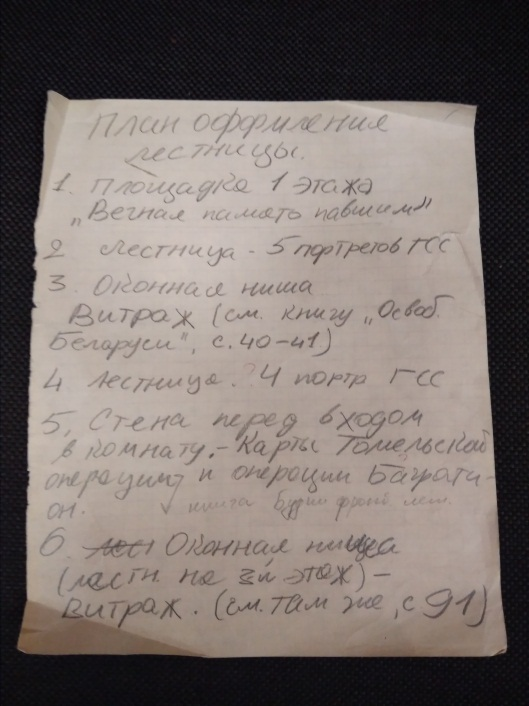 План оформления
лестницы.
1. Площадка 1 этажа
„Вечная память павшим"
2 Лестница - 5 портретов ГСС
3. Оконная ниша
Витраж (см. книгу „Освоб.
Беларуси", с. 40-41)
4 Лестница. 4 портр ГСС
5. Стена перед входом
в комнату. - Карты Гомельской
операции и операции Баграти-
он.
книга
6 Оконная ниша
(лестн. на 3й этаж) -
Витраж. (см. там же, с 91)